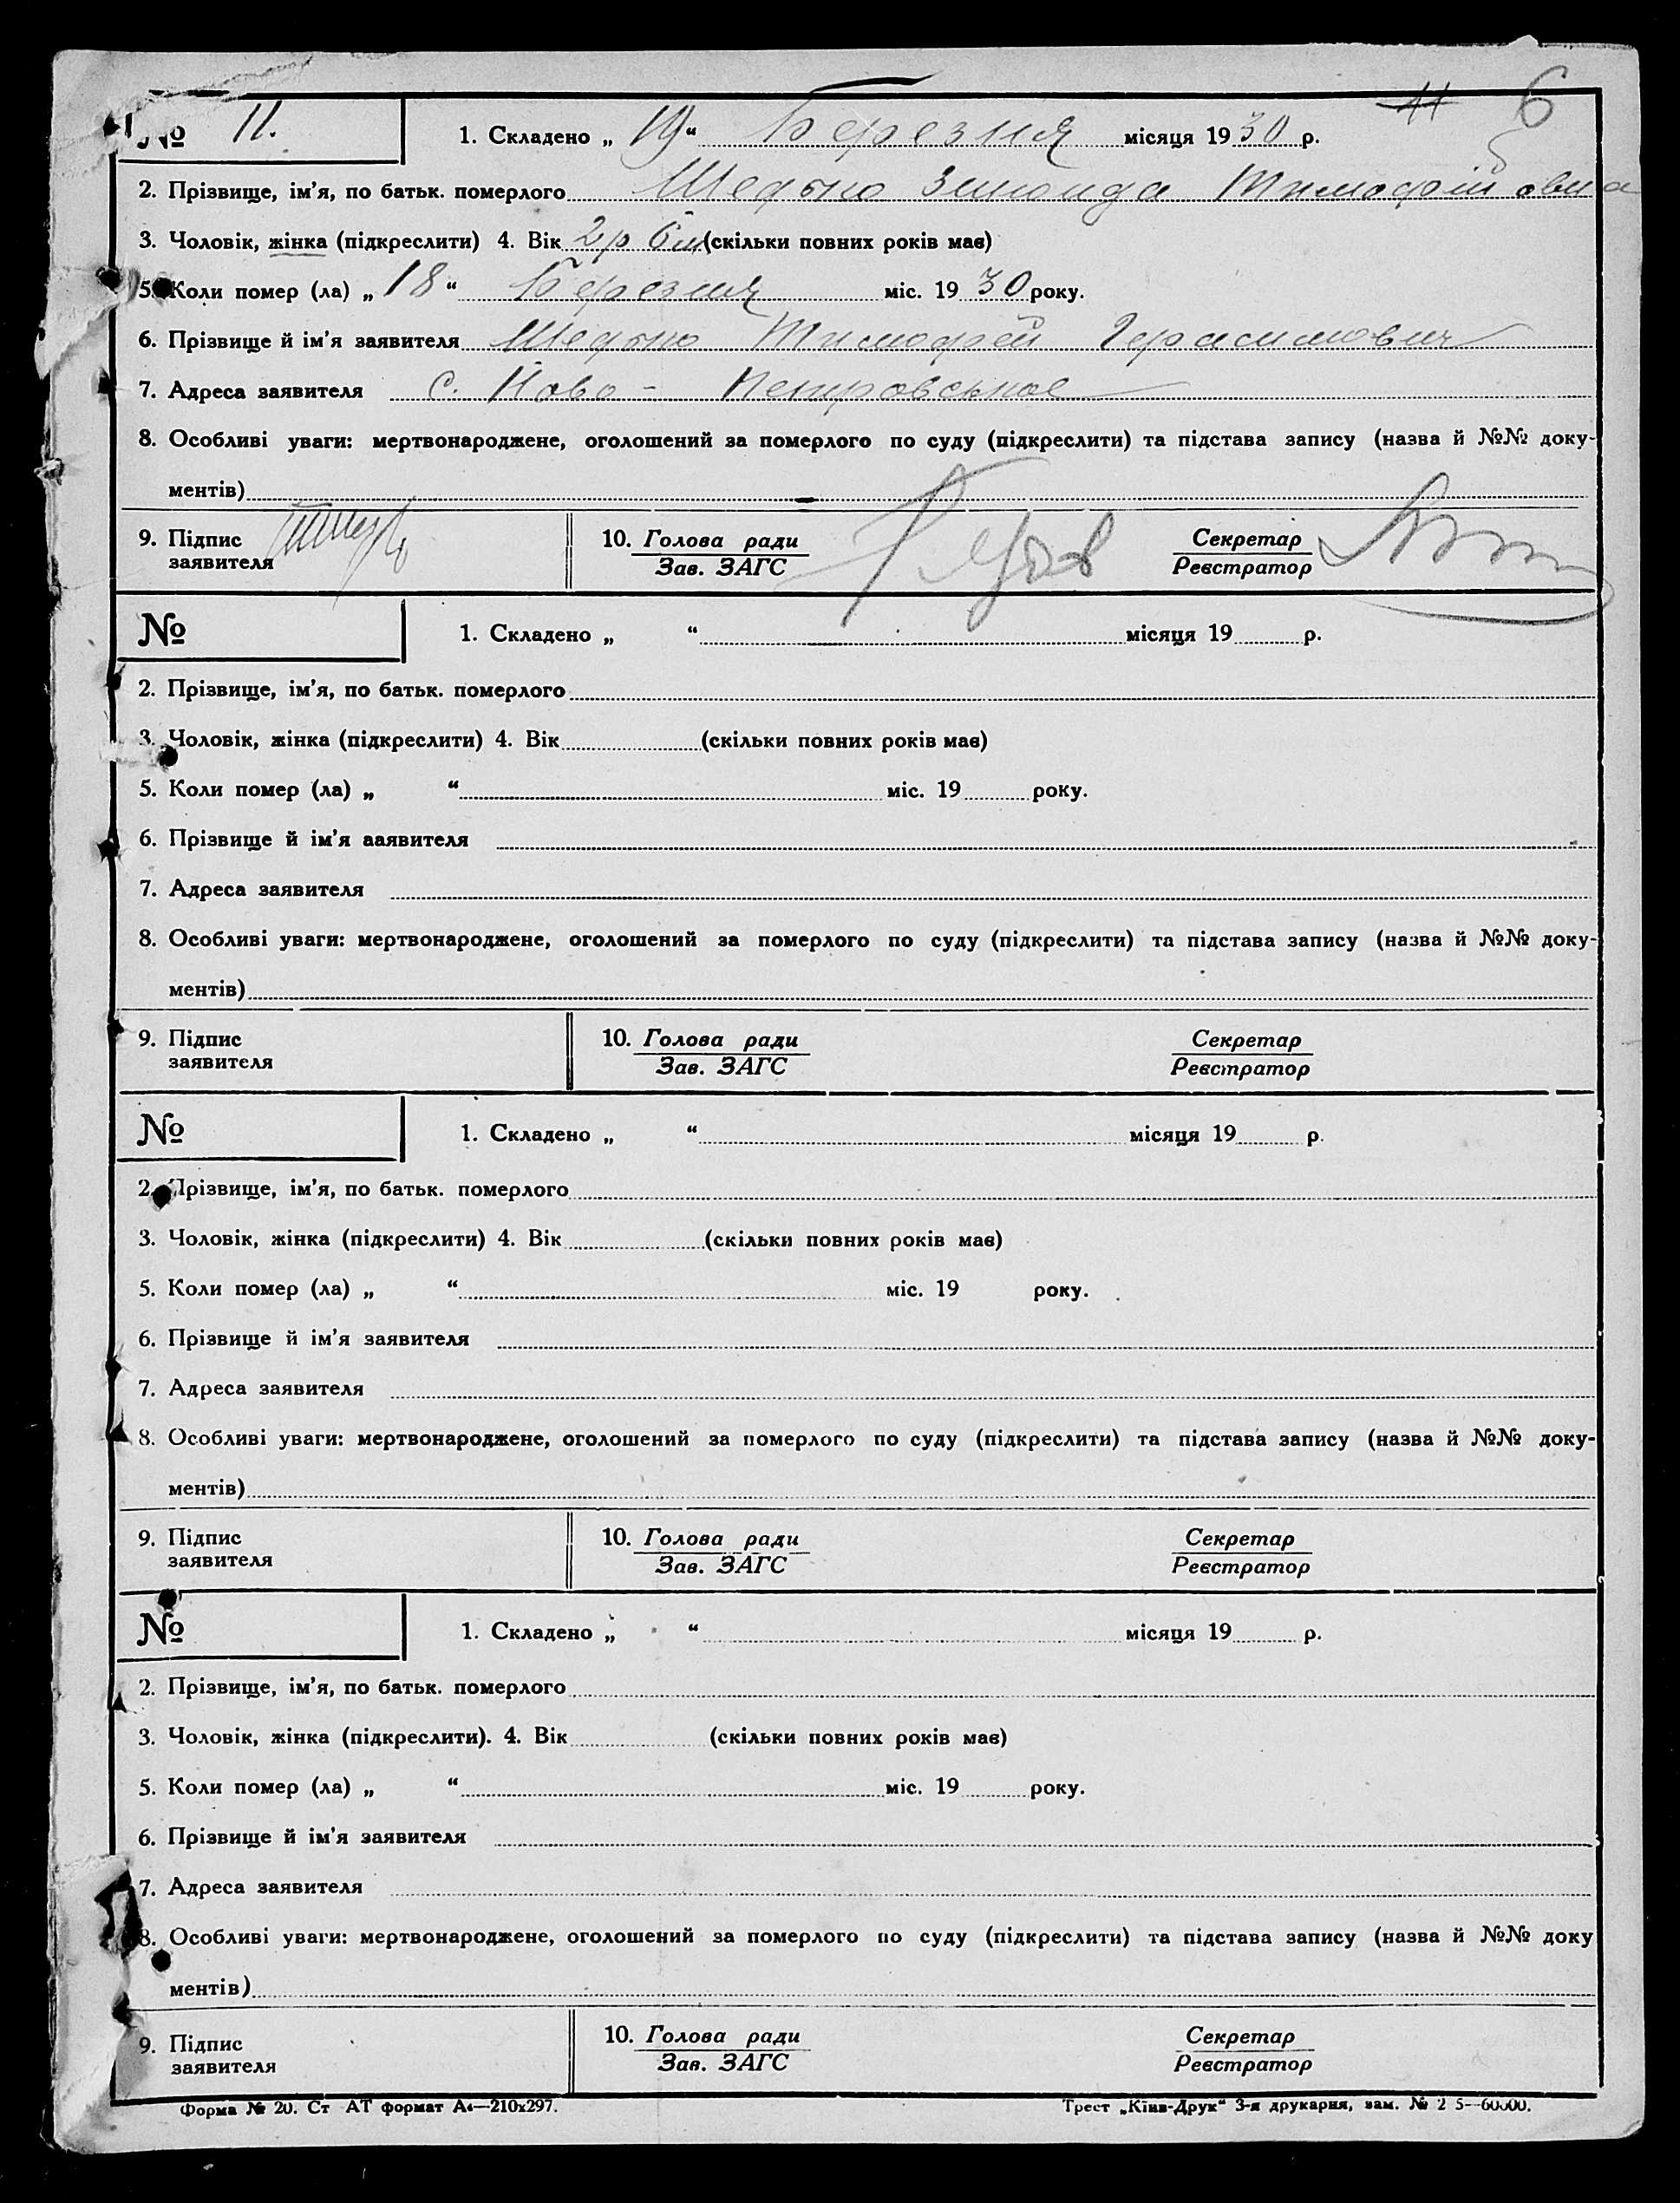 11 6
№ 11. 1. Складено „ 19 “ Березня місяця 1930 р.
2. Прізвище, ім’я, по батьк. померлого Зинаида Тимофійовна
3. Чоловік, жінка (підкреслити) 4. Вік 2р 6м (скільки повних років має)
5. Коли помер (ла) „ 18 “ Березня міс. 19 30 року.
6. Прізвище й ім’я заявителя Тимофей Герасимович
7. Адреса заявителя с. Ново- Петровськое
8. Особливі уваги: мертвонароджене, оголошений за померлого по суду (підкреслити) та підстава запису (назва й №№ доку-
ментів)
9. Підпис 10. Голова ради Секретар
заявителя Зав. ЗАГС Реєстратор
№ 1. Складено „ “ місяця 19 р.
2. Прізвище, ім’я, по батьк. померлого
3. Чоловік, жінка (підкреслити) 4. Вік (скільки повних років має)
5. Коли помер (ла) „ “ міс. 19 року.
6. Прізвище й ім’я ааявителя
7. Адреса заявителя
8. Особливі уваги: мертвонароджене, оголошений за померлого по суду (підкреслити) та підстава запису (назва й №№ доку-
ментів)
9. Підпис 10. Голова ради Секретар
заявителя Зав. ЗАГС Реєстратор
№ 1. Складено „ “ місяця 19 р.
2. Прізвище, ім’я, по батьк. померлого
3. Чоловік, жінка (підкреслити) 4. Вік (скільки повних років має)
5. Коли помер (ла) „ “ міс. 19 року.
6. Прізвище й ім’я заявителя
7. Адреса заявителя
8. Особливі уваги: мертвонароджене, оголошений за померлого по суду (підкреслити) та підстава запису (назва й №№ доку-
ментів)
9. Підпис 10. Голова ради Секретар
заявителя Зав. ЗАГС Реєстратор
№ 1. Складено „ “ місяця 19 р.
2. Прізвище, ім’я, по батьк. померлого
3. Чоловік, жінка (підкреслити). 4. Вік (скільки повних років має)
5. Коли помер (ла) „ “ міс. 19 року.
6. Прізвище й ім’я заявителя
7. Адреса заявителя
8. Особливі уваги: мертвонароджене, оголошений за померлого по суду (підкреслити) та підстава запису (назва й №№ доку
ментів)
9. Підпис 10. Голова ради Секретар
заявителя Зав. ЗАГС Реєстратор
Форма № 20. Ст АТ формат А4—210x297. Трест „Київ-Друк“ 3-я друкарня, зам. №